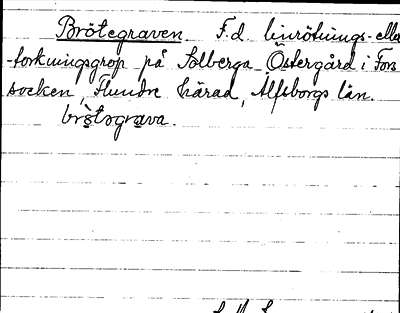 Brötegraven. F.d. linrötnings- eller
-torkningsgrop på Solberga Östergård i Fors
socken, Flundre härad, Älfsborgs län.
brötsgrava.